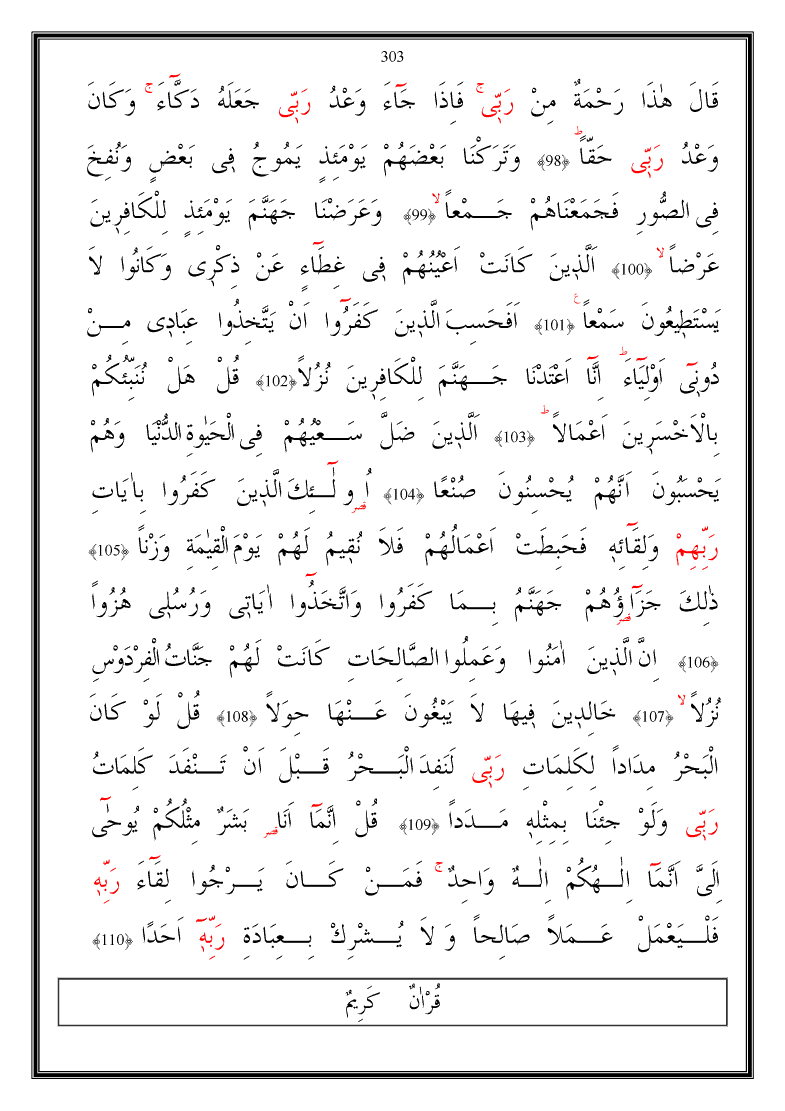 303
قَالَ هٰذَا رَحْمَةٌ مِنْ رَبّ۪يۚ فَاِذَا جَٓاءَ وَعْدُ رَبّ۪ي جَعَلَهُ دَكَّٓاءَۚ وَكَانَ
وَعْدُ رَبّ۪ي حَقًّاۜ ﴿98﴾ وَتَرَكْنَا بَعْضَهُمْ يَوْمَئِذٍ يَمُوجُ ف۪ي بَعْضٍ وَنُفِخَ
فِي الصُّورِ فَجَمَعْنَاهُمْ جَـــمْعاًۙ ﴿99﴾ وَعَرَضْنَا جَهَنَّمَ يَوْمَئِذٍ لِلْكَافِر۪ينَ
عَرْضاًۙ ﴿100﴾ اَلَّذ۪ينَ كَانَتْ اَعْيُنُهُمْ ف۪ي غِطَٓاءٍ عَنْ ذِكْر۪ي وَكَانُوا لَا
يَسْتَط۪يعُونَ سَمْعاًۚ ﴿101﴾ اَفَحَسِبَ الَّذ۪ينَ كَفَرُٓوا اَنْ يَتَّخِذُوا عِبَاد۪ي مِـــنْ
دُون۪ٓي اَوْلِيَٓاءَۜ اِنَّٓا اَعْتَدْنَا جَـــهَنَّمَ لِلْكَافِر۪ينَ نُزُلاً ﴿102﴾ قُلْ هَلْ نُنَبِّئُكُمْ
بِالْاَخْسَر۪ينَ اَعْمَالاًۜ ﴿103﴾ اَلَّذ۪ينَ ضَلَّ سَـــعْيُهُمْ فِي الْحَيٰوةِ الدُّنْيَا وَهُمْ
يَحْسَبُونَ اَنَّهُمْ يُحْسِنُونَ صُنْعًا ﴿104﴾ اُو۬لٰٓـــئِكَ الَّذ۪ينَ كَفَرُوا بِاٰيَاتِ
رَبِّهِمْ وَلِقَٓائِه۪ فَحَبِطَتْ اَعْمَالُهُمْ فَلَا نُق۪يمُ لَهُمْ يَوْمَ الْقِيٰمَةِ وَزْناً ﴿105﴾
ذٰلِكَ جَزَٓاؤُ۬هُمْ جَهَنَّمُ بِـــمَا كَفَرُوا وَاتَّخَذُٓوا اٰيَات۪ي وَرُسُل۪ي هُزُواً
﴿106﴾ اِنَّ الَّذ۪ينَ اٰمَنُوا وَعَمِلُوا الصَّالِحَاتِ كَانَتْ لَهُمْ جَنَّاتُ الْفِرْدَوْسِ
نُزُلاًۙ ﴿107﴾ خَالِد۪ينَ ف۪يهَا لَا يَبْغُونَ عَـــنْهَا حِوَلاً ﴿108﴾ قُلْ لَوْ كَانَ
الْبَحْرُ مِدَاداً لِكَلِمَاتِ رَبّ۪ي لَنَفِدَ الْبَـــحْرُ قَـــبْلَ اَنْ تَـــنْفَدَ كَلِمَاتُ
رَبّ۪ي وَلَوْ جِئْنَا بِمِثْلِه۪ مَـــدَداً ﴿109﴾ قُلْ اِنَّمَٓا اَنَا۬ بَشَرٌ مِثْلُكُمْ يُوحٰٓى
اِلَيَّ اَنَّمَٓا اِلٰـــهُكُمْ اِلٰـــهٌ وَاحِدٌۚ فَمَـــنْ كَـــانَ يَـــرْجُوا لِقَٓاءَ رَبِّه۪
فَلْـــيَعْمَلْ عَـــمَلاً صَالِحاً وَ لَا يُـــشْرِكْ بِـــعِبَادَةِ رَبِّه۪ٓ اَحَدًا ﴿110﴾
قُرْاٰنٌ كَرِيمٌ